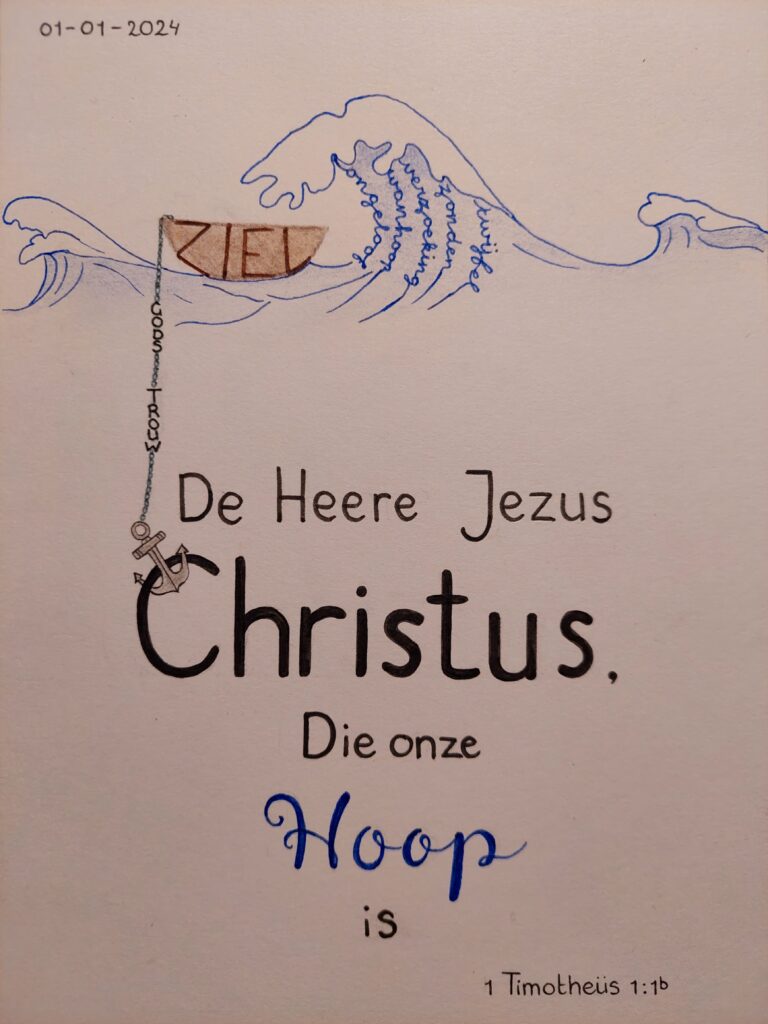 01-01-2024
ZIEL
ongeloof
wanhoop
verzoeking
zonden
twijfel
GODS TROUW
De Heere Jezus
Christus,
Die onze
Hoop
is
1 Timotheüs 1:1b